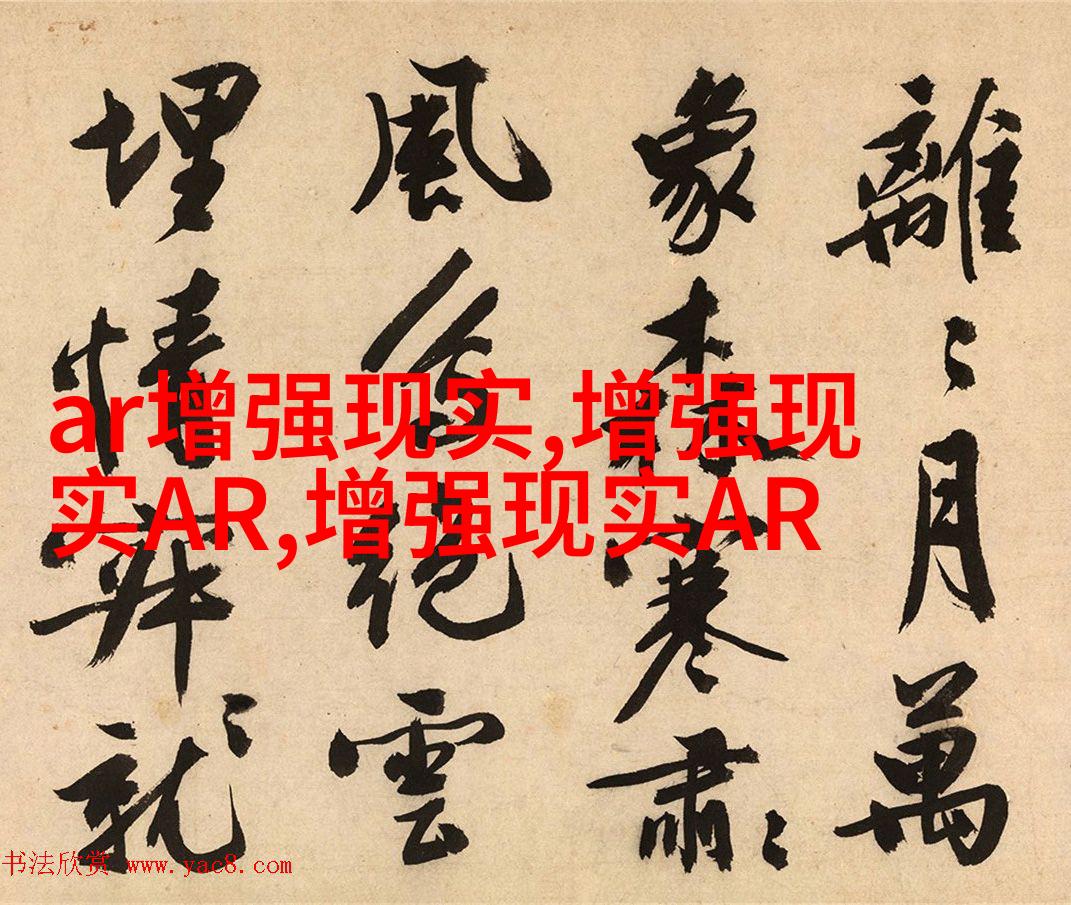 離〻月萬
象森寒肅〻
風絕雲
埋情就
ar增强现实,增强现
实AR,增强现实AR
书法欣赏 www.yac8.com